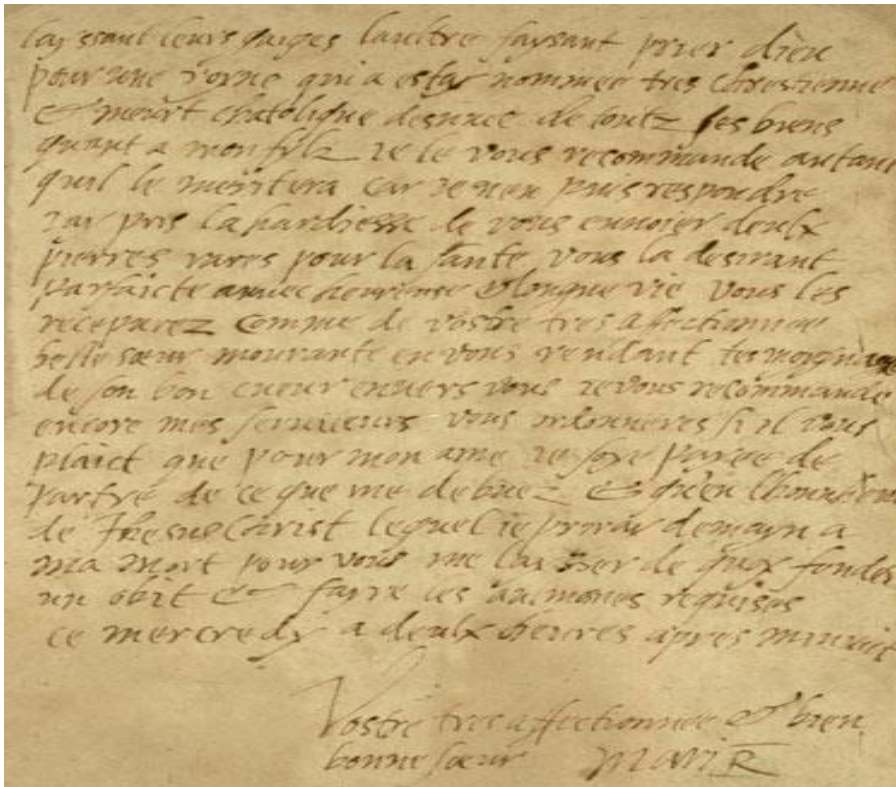 laissant leurs guiges laultre faysant prier dieu
pour une royne qui a estay nommee tres chrestienne
& meurt chatolique desnuee de toutz ses biens
quant a mon filz ie le vous recommande autant
quil le meritera car ie nen puis respondre
iay pris la hardiesse de vous envoier deulx
pierres rares pour la sante vous la desirant
parfaicte auuec heureuse & longue vie vous les
recepvrez comme de vostre tres affectionnee
belle sœur mourante en vous rendant tesmoygnasge
de son bon cueur envers vous ie vous recommande
encore mes serviteurs vous ordonneres si il vous
plaict que pour mon ame ie soye payee de
partye de ce que me debvez & quen lhonneur
de Jhesus Christ lequel ie priray demayn a
ma mort pour vous me laisser de quoy fonder
un obit & fayre les aulmones requises
ce mercredy a deulx heures apres minuict
Vostre tres affectionnee & bien
bonne sœur Mari R